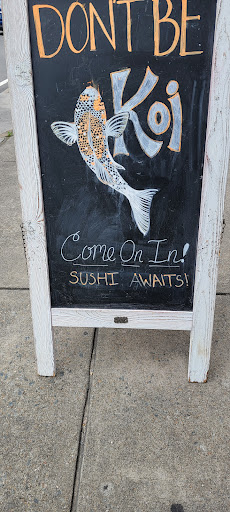 DONT BE
Koi
Come On In!
SUSHI AWAITS!